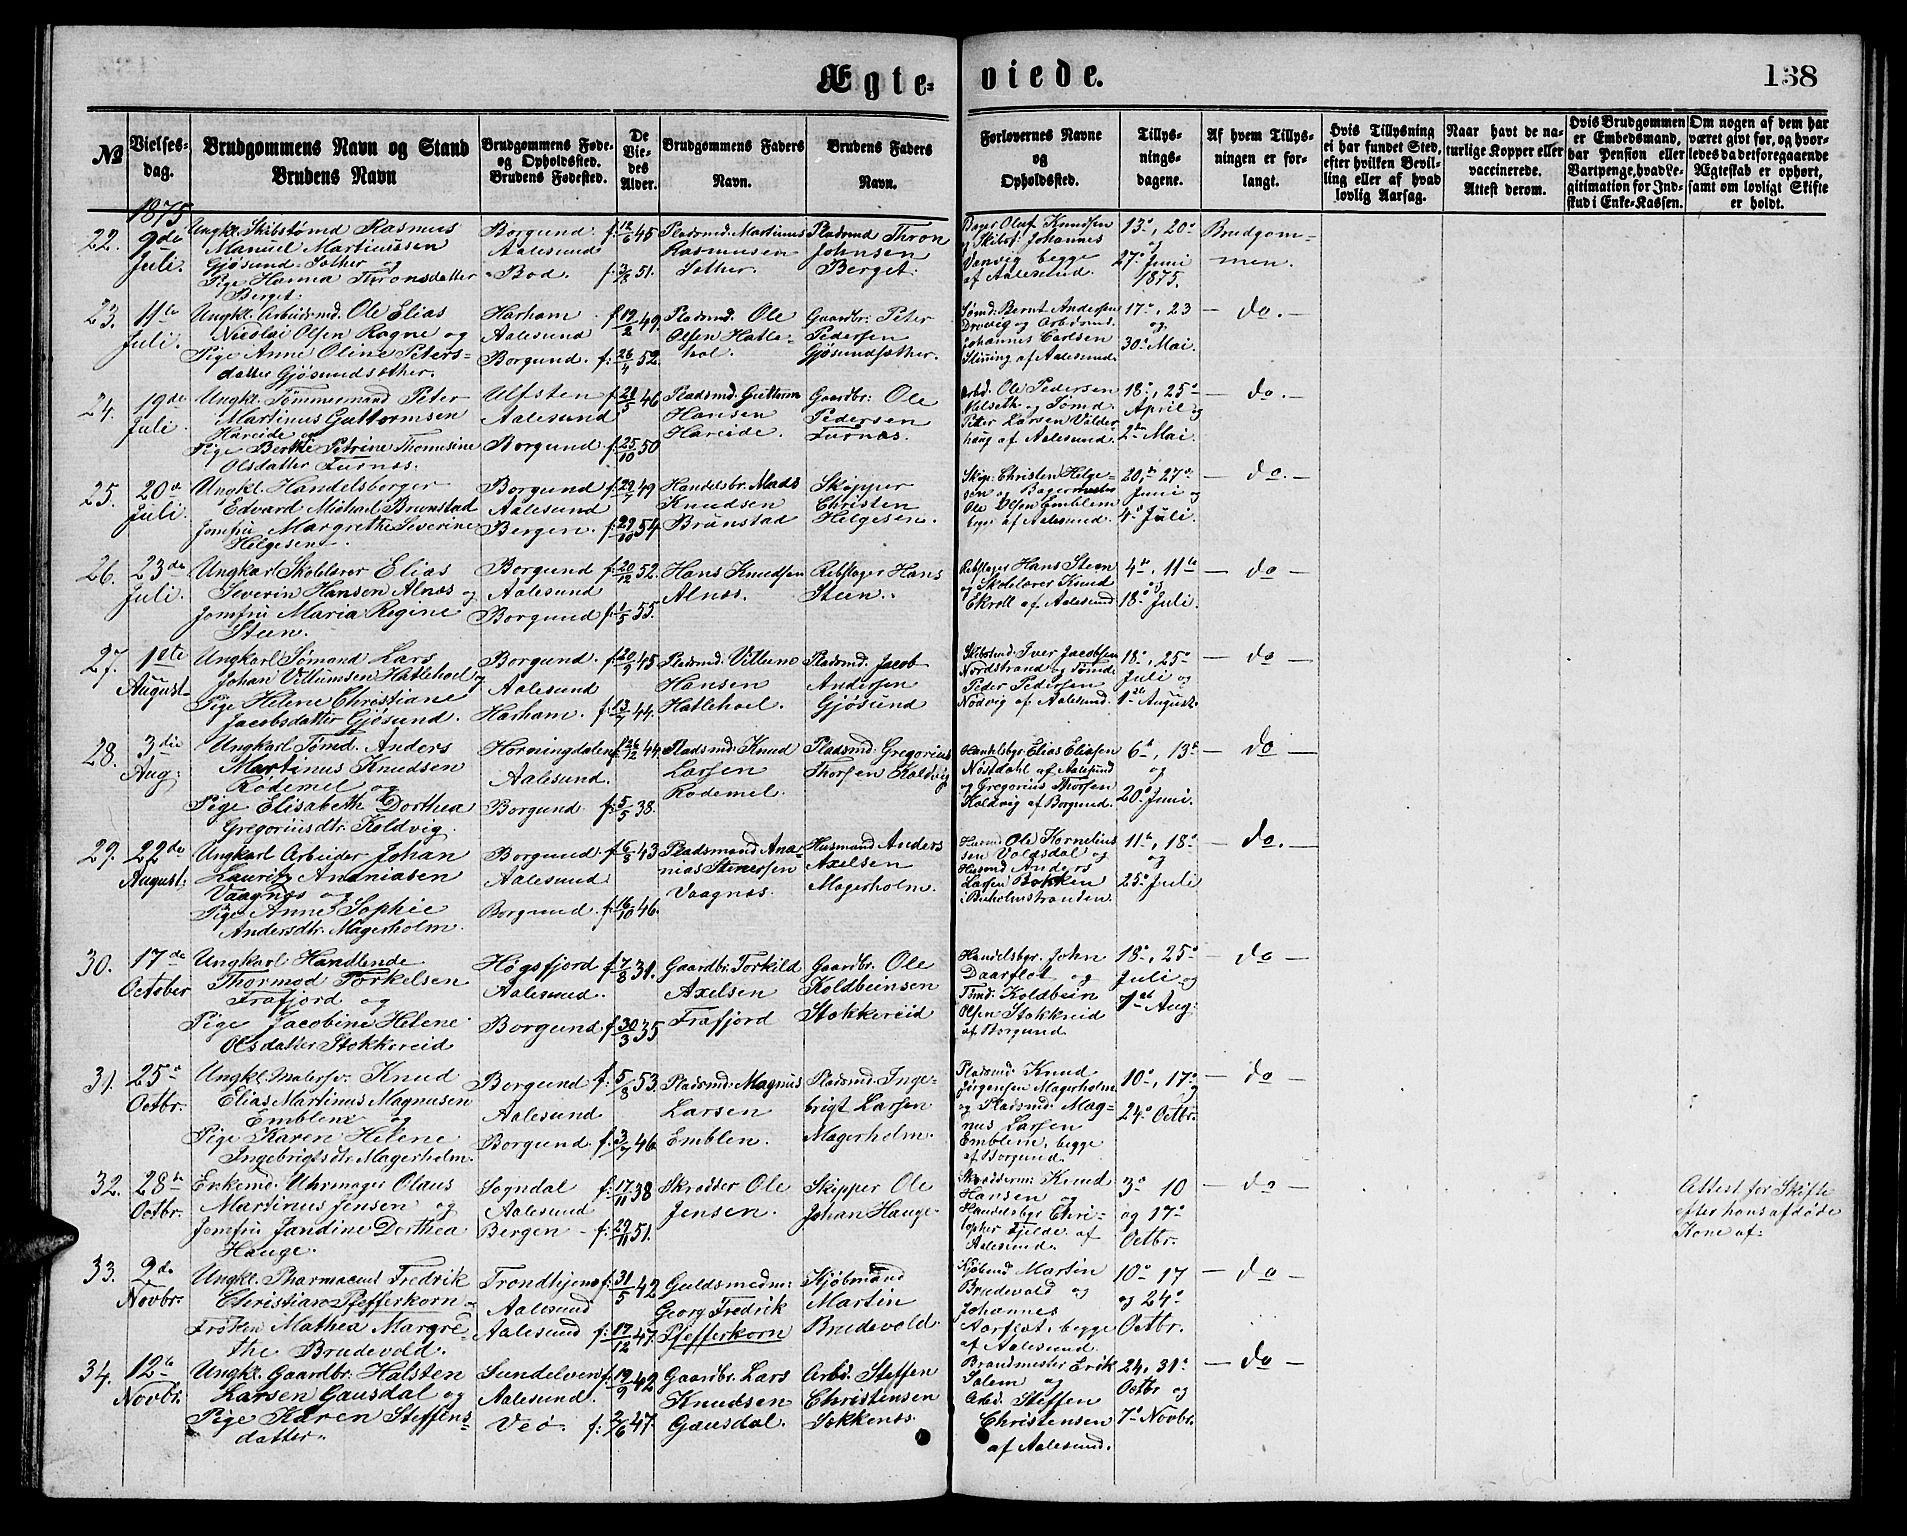 Ægte-
viede.
138
№
Vielses-
dag.
Brudgommens Navn og Stand
Brudens Navn
Brudgommens Føde-
og Opholdssted.
Brudens Fødested.
De
Vie-
des
Alder.
Brudgommens Faders
Navn.
Brudens Faders
Navn.
Forlovernes Navne
og
Opholdssted.
Tillys-
nings-
dagene.
Af hvem Tillys-
ningen er for-
langt.
Hvis Tillysning
ei har fundet Sted,
efter hvilken Bevil-
ling eller af hvad
lovlig Aarsag.
Naar havt de na-
turlige Kopper eller
vaccinerede.
Attest derom.
Hvis Brudgommen
er Embedsmand,
har Pension eller
Vartpenge, hvad Le-
gitimation for Ind-
skud i Enke-Kassen.
Om nogen af dem har
været givt før, og hvor-
ledes da det foregaaende
Ægteskab er ophørt,
samt om lovligt Skifte
er holdt.
1875
22.
9de
Juli.
Ungkl. Skibstømd Rasmus
Manuel Martinussen
Gjøsund Sæther og
Pige Hanna Thronsdatter
Berget.
Borgund.
Aalesund
Bod.
f. 12/6 45
f. 3/8 51.
Pladsmd. Martinus
Rasmusen
Sæther.
Pladsmd Thron
Johnsen
Berget.
Bager Oluf Knudsen
og Skibsf. Johannes
Vanvig begge
af Aalesund.
13de, 20de
og
27de Juni
1875.
Brudgom-
men.
23.
11te
Juli.
Ungkl. Arbeidsmd. Ole Elias
Nicolai Olsen Rogne og
Pige Anne Oline Peters-
datter Gjøsundsæther.
Harham.
Aalesund
Borgund
f. 19/2 49.
f. 26/4 52.
Pladsmd. Ole
Olsen Hatle-
hol.
Gaardbr. Peter
Pedersen
Gjøsundsæther.
Sømd. Bernt Andersen
Drøvig og Arbdsmd.
Johannes Carlsen
Slinning af Aalesund.
17de, 23
og
30de Mai.
— do. —
24.
19de
Juli.
Ungkl. Tømmermand Peter
Martinus Guttormsen
Hareide og
Pige Berthe Petrine Thomasine
Olsdatter Furnæs.
Ulfsten
Aalesund
Borgund
f. 28/5 46
f. 25/10 50
Pladsmd. Guttorm
Hansen
Hareide.
Gaardbr. Ole
Pedersen
Furnæs.
Arbd. Ole Pedersen
Melseth og Tømd.
Peter Larsen Valder-
haug af Aalesund.
18de, 25de
April og
2den Mai.
— do. —
25.
20de
Juli.
Ungkl. Handelsborger
Edvard Michael Brunstad
Jomfru Margrethe Severine
Helgesen.
Borgund
Aalesund
Bergen
f. 29/7 49
f. 29/10 54.
Handelsbr. Mads
Knudsen
Brunstad
Skipper
Christen
Helgesen.
Skip. Christen Helge-
sen og Bagermester
Ole Olsen Emblem
begge af Aalesund.
20de, 27de
Juni og
4de Juli.
— do. —
26.
23de
Juli.
Ungkarl Skolelærer Elias
Severin Hansen Alnæs og
Jomfru Maria Regine
Steen.
Borgund
Aalesund
Borgund
f. 20/12 52.
f. 1/5 55.
Hans Knudsen
Alnæs.
Rebslager Hans
Steen.
Rebslager Hans Steen
og Skolelærer Knud
Ekroll af Aalesund
4de, 11te
og
18de Juli.
— do —
27.
1ste
August
Ungkarl Sømand Lars
Johan Villumsen Hatlehoel og
Pige Helene Christiane
Jacobsdatter Gjøsund.
Borgund.
Aalesund
Harham.
f. 20/9 45
f. 13/7 44.
Pladsmd. Villum
Hansen
Hatlehoel.
Pladsmd. Jacob
Andersen
Gjøsund
Skibstmd. Iver Jacobsen
Nordstrand og Tømd.
Peder Pedersen
Nødvig af Aalesund.
18de, 25de
Juli og
1ste August.
— do —
28.
3die
Aug.
Ungkarl Tømd. Anders
Martinus Knudsen
Rødemel og
Pige Elisabeth Dorthea
Gregoriusdtr. Koldvig.
Horningdalen
Aalesund.
Borgund.
f. 26/12 44
f. 5/5 38.
Pladsmd. Knud
Larsen
Rødemel.
Pladsmd. Gregorius
Thorsen Koldvig
Handelsbgr. Elias Eliasen
Nøstdahl af Aalesund
og Gregorius Thorsen
Koldvig af Borgund.
6te, 13de
og
20de Juni.
— do —
29.
22de
August.
Ungkarl Arbeider Johan
Lauritz Ananiasen
Vaagnæs og
Pige Anne Sophie
Andersdtr. Magerholm.
Borgund.
Aalesund
Borgund
f. 6/8 43
f. 16/10 46.
Pladsmand Ana-
nias Stenersen
Vaagnæs.
Husmand Anders
Axelsen
Magerholm.
Husmd Ole Kornelius
sen Valdsdal og
Husmd Anders
Larsen Bakken
i Buholmstranden.
11te, 18de
og
25de Juli
— do. —
30.
17de
October
Ungkarl Handlende
Thormod Torkelsen
Frafjord og
Pige Jacobine Helene
Olsdatter Stokkereid
Høgsfjord
Aalesund.
Borgund
f. 7/8 31.
f. 30/3 35
Gaardbr. Torkild
Axelsen
Frafjord
Gaardbr. Ole
Koldbeinsen
Stokkereid
Handelsbgr. John
Daarflot og
Tømd. Koldbein
Olsen Stokkreid
af Borgund
18de, 25de
Juli og
1ste Aug.
— do —
31.
25de
Octbr.
Ungkl. Malersv. Knud
Elias Martinus Magnusen
Emblem og
Pige Karen Helene
Ingebrigtsdtr. Magerholm.
Borgund
Aalesund
Borgund.
f. 5/8 53.
f. 3/7 46
Pladsmd. Magnus
Larsen
Emblen.
Pladsmd. Inge-
brigt Larsen
Magerholm.
Pladsmd. Knud
Jørgensen Magerholm
og Pladsmd. Mag-
nus Larsen
Emblem, begge
af Borgund.
10de, 17de
og
24de Octbr.
— do —
32.
28de
Octbr.
Enkemd. Uhrmager Olaus
Martinus Jensen og
Jomfru Jandine Dorthea
Hauge.
Sogndal
Aalesund
Bergen
f. 17/11 38
f. 29/11 51.
Skrædder Ole
Jensen.
Skipper Ole
Johan Hauge.
Skrædderm. Knud
Hansen og
Handelsbgr. Chri-
topher Fjelde af
Aalesund.
3de 10
og 17de
Octbr.
— do —
Attest for Skifte
efter hans afdøde
Kone af-
33.
2den
Novbr.
Ungkl. Pharmaceut Fredrik
Christian Pfefferkorn
Frøken Mathea Margre-
the Brudevold.
Trondhjem
Aalesund
Aalesund
f. 31/5 42
f. 19/12 47.
Guldsmedm.
Georg Fredrik
Pfefferkorn
Kjøbmand
Martin
Brudevold
Kjøbmd Martin
Brudevold og
Johannes
Aarflot, begge
af Aalesund.
10de 17
og 24de
Octbr.
— do —
34.
12te
Novbr.
Ungkl. Gaardbr. Halsten
Larsen Gausdal og
Pige Karen Steffens-
datter.
Sundelven
Aalesund.
Veø.
f. 19/9 42
f. 2/6 47.
Gaardbr. Lars
Knudsen
Gausdal.
Arbd. Steffen
Christensen
Sokknæs.
Brandmester Erik
Salem og
Arbd. Steffen
Christensen
af Aalesund.
24, 31de
Octbr og
7de Novbr.
— do —